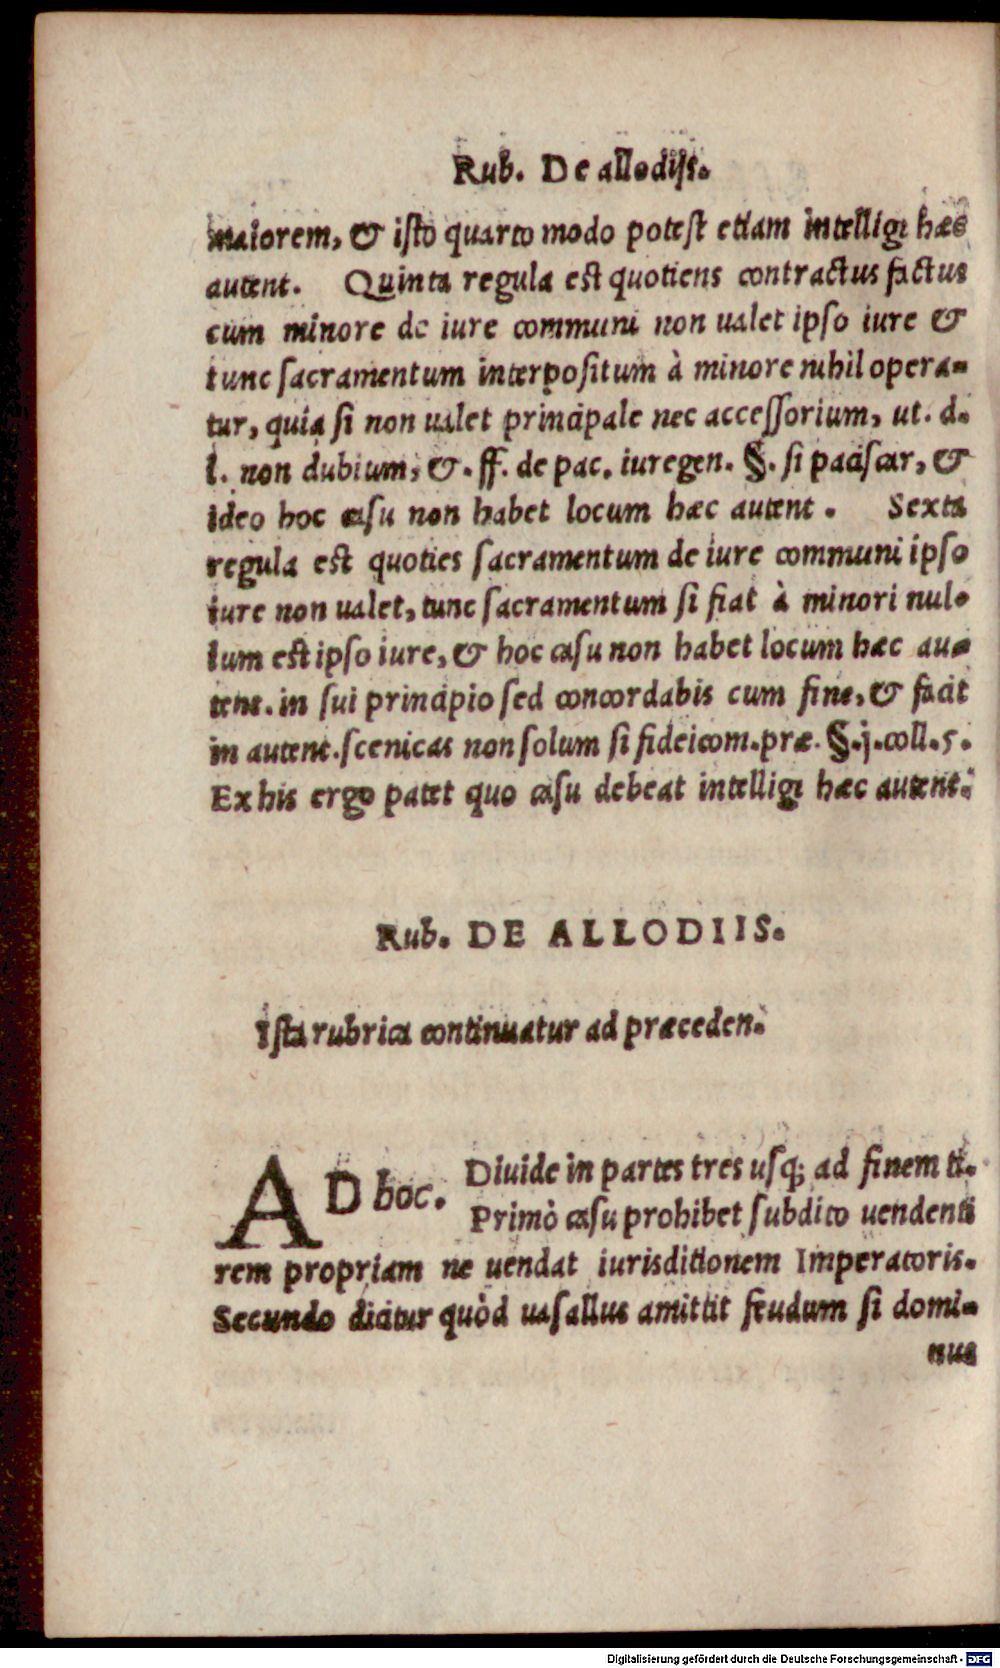 Rub. De allodijs.
maiorem, & isto quarto modo potest etiam intelligi hæc
autent. Quinta regula est quotiens contractus factus
cum minore de iure communi non ualet ipso iure &
tunc sacramentum interpositum à minore nihil opera-
tur, quia si non ualet principale nec accessorium, ut. d.
l. non dubium, &. ff. de pac. iuregen. §. si paciscar, &
ideo hoc casu non habet locum hæc autent. Sexta
regula est quoties sacramentum de iure communi ipso
iure non ualet, tunc sacramentum si fiat à minori nul-
lum est ipso iure, & hoc casu non habet locum hæc au-
tent. in sui principio sed concordabis cum fine, & facit
in autent. scenicas non solum si fideicom. præ. §. j. coll. 5.
Ex his ergo patet quo casu debeat intelligi hæc autent.
Rub. DE ALLODIIS.
Ista rubrica continuatur ad præceden.
AD hoc. Diuide in partes tres usq; ad finem ti.
Primò casu prohibet subdito uendenti
rem propriam ne uendat iurisditionem Imperatoris.
Secundo dicitur quòd uasallus amittit feudum si domi-
nus
Digitalisierung gefördert durch die Deutsche Forschungsgemeinschaft - DFG